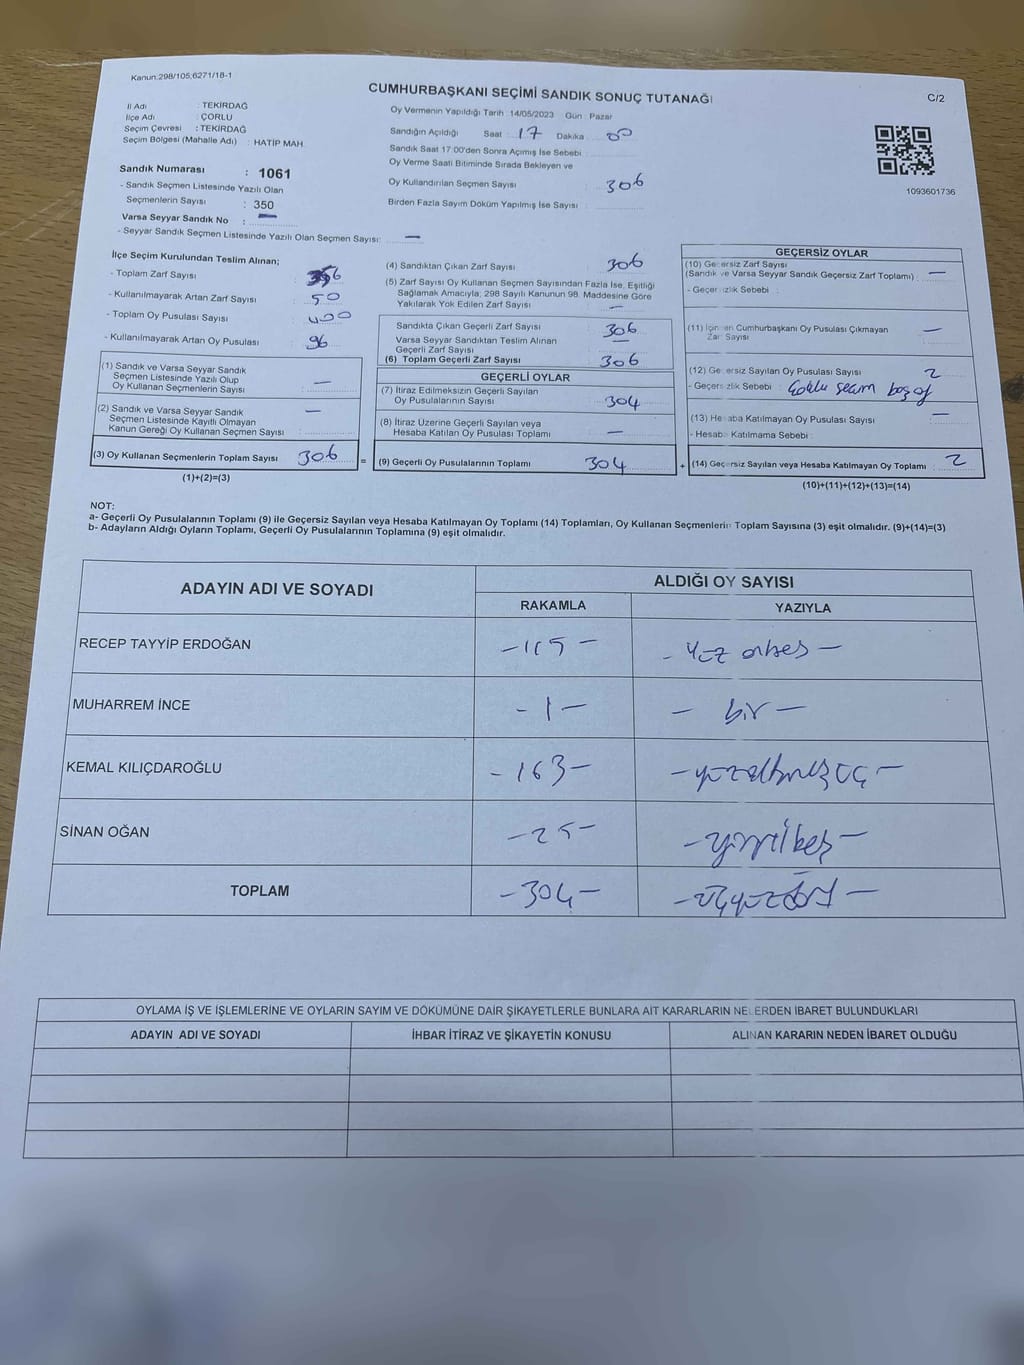 Kanun:298/105,6271/18-1
CUMHURBAŞKANI SEÇİMİ SANDIK SONUÇ TUTANAĞI
C/2
İl Adı : TEKİRDAĞ
İlçe Adı : ÇORLU
Seçim Çevresi : TEKİRDAĞ
Seçim Bölgesi (Mahalle Adı) : HATİP MAH.
Oy Vermenin Yapıldığı Tarih :14/05/2023 Gün : Pazar
Sandığın Açıldığı Saat : 17 Dakika : 00
Sandık Saat 17:00'den Sonra Açılmış İse Sebebi :
Oy Verme Saati Bitiminde Sırada Bekleyen ve
Oy Kullandırılan Seçmen Sayısı : 306
Birden Fazla Sayım Döküm Yapılmış İse Sayısı :
1093601736
Sandık Numarası : 1061
- Sandık Seçmen Listesinde Yazılı Olan
Seçmenlerin Sayısı : 350
Varsa Seyyar Sandık No : —
- Seyyar Sandık Seçmen Listesinde Yazılı Olan Seçmen Sayısı: —
İlçe Seçim Kurulundan Teslim Alınan;
- Toplam Zarf Sayısı : 356
- Kullanılmayarak Artan Zarf Sayısı : 50
- Toplam Oy Pusulası Sayısı : 400
- Kullanılmayarak Artan Oy Pusulası : 96
(1) Sandık ve Varsa Seyyar Sandık
Seçmen Listesinde Yazılı Olup
Oy Kullanan Seçmenlerin Sayısı : —
(2) Sandık ve Varsa Seyyar Sandık
Seçmen Listesinde Kayıtlı Olmayan
Kanun Gereği Oy Kullanan Seçmen Sayısı : —
(3) Oy Kullanan Seçmenlerin Toplam Sayısı : 306
(1)+(2)=(3)
(4) Sandıktan Çıkan Zarf Sayısı : 306
(5) Zarf Sayısı Oy Kullanan Seçmen Sayısından Fazla İse, Eşitliği
Sağlamak Amacıyla; 298 Sayılı Kanunun 98. Maddesine Göre
Yakılarak Yok Edilen Zarf Sayısı : —
Sandıkta Çıkan Geçerli Zarf Sayısı : 306
Varsa Seyyar Sandıktan Teslim Alınan
Geçerli Zarf Sayısı : —
(6) Toplam Geçerli Zarf Sayısı : 306
GEÇERLİ OYLAR
(7) İtiraz Edilmeksizin Geçerli Sayılan
Oy Pusulalarının Sayısı : 304
(8) İtiraz Üzerine Geçerli Sayılan veya
Hesaba Katılan Oy Pusulası Toplamı : —
= (9) Geçerli Oy Pusulalarının Toplamı : 304
GEÇERSİZ OYLAR
(10) Geçersiz Zarf Sayısı
(Sandık ve Varsa Seyyar Sandık Geçersiz Zarf Toplamı) : —
- Geçersizlik Sebebi :
(11) İçinden Cumhurbaşkanı Oy Pusulası Çıkmayan
Zarf Sayısı : —
(12) Geçersiz Sayılan Oy Pusulası Sayısı : 2
- Geçersizlik Sebebi : Çoklu seçim boş oy
(13) Hesaba Katılmayan Oy Pusulası Sayısı : —
- Hesaba Katılmama Sebebi :
+ (14) Geçersiz Sayılan veya Hesaba Katılmayan Oy Toplamı : 2
(10)+(11)+(12)+(13)=(14)
NOT:
a- Geçerli Oy Pusulalarının Toplamı (9) ile Geçersiz Sayılan veya Hesaba Katılmayan Oy Toplamı (14) Toplamları, Oy Kullanan Seçmenlerin Toplam Sayısına (3) eşit olmalıdır. (9)+(14)=(3)
b- Adayların Aldığı Oyların Toplamı, Geçerli Oy Pusulalarının Toplamına (9) eşit olmalıdır.
ADAYIN ADI VE SOYADI
ALDIĞI OY SAYISI
RAKAMLA YAZIYLA
RECEP TAYYİP ERDOĞAN -115- - yüz onbeş -
MUHARREM İNCE -1- - bir -
KEMAL KILIÇDAROĞLU -163- -yüzaltmışüç-
SİNAN OĞAN -25- -yirmibeş-
TOPLAM -304- -üçyüzdört-
OYLAMA İŞ VE İŞLEMLERİNE VE OYLARIN SAYIM VE DÖKÜMÜNE DAİR ŞİKAYETLERLE BUNLARA AİT KARARLARIN NELERDEN İBARET BULUNDUKLARI
ADAYIN ADI VE SOYADI İHBAR İTİRAZ VE ŞİKAYETİN KONUSU ALINAN KARARIN NEDEN İBARET OLDUĞU